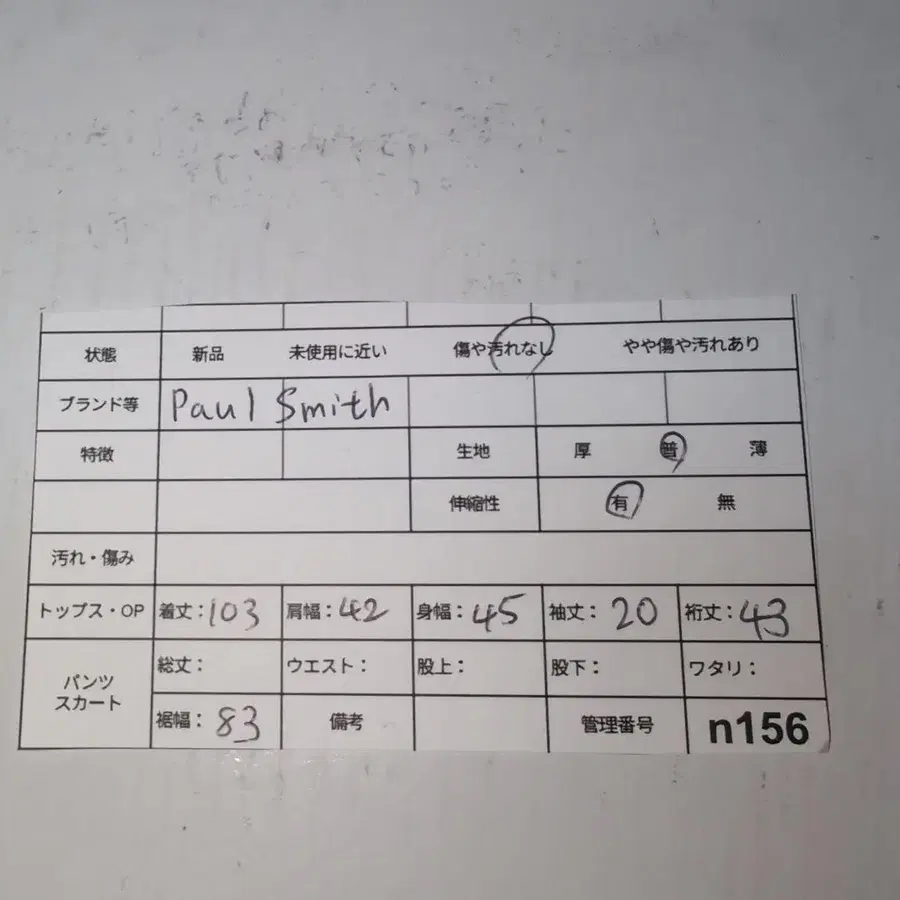 状態 新品 未使用に近い 傷や汚れなし やや傷や汚れあり
ブランド等 Paul Smith
特徴 生地 厚 普 薄
伸縮性 有 無
汚れ・傷み
トップス・OP 着丈：103 肩幅：42 身幅：45 袖丈：20 裄丈：43
パンツ 総丈： ウエスト： 股上： 股下： ワタリ：
スカート 裾幅：83 備考 管理番号 n156